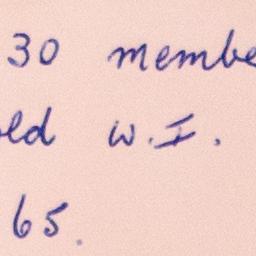 30 membe
eld W.I.
65.